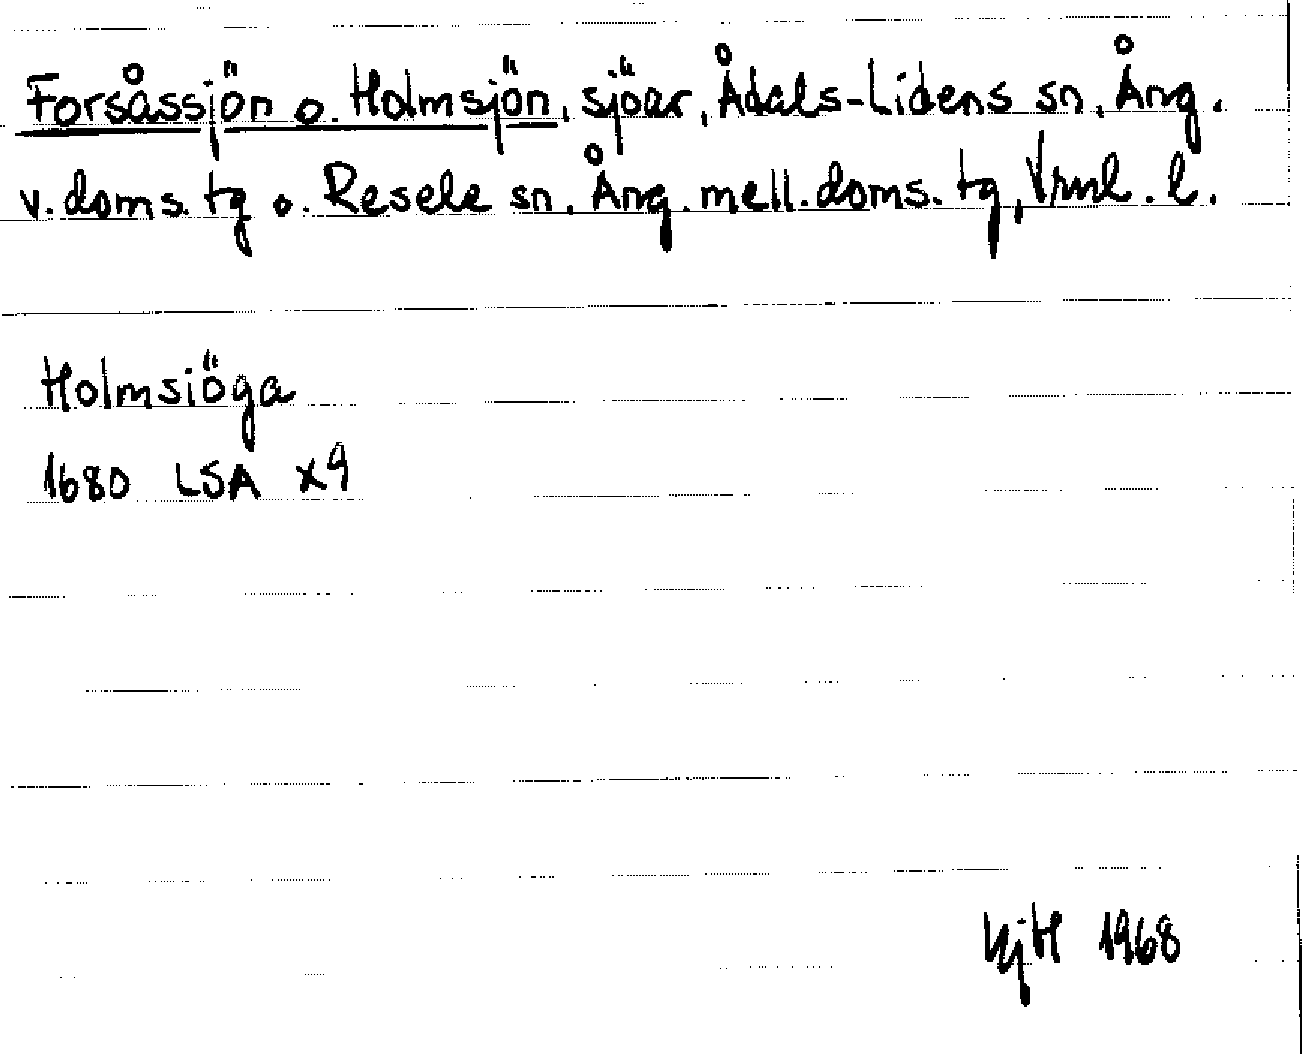 Forsåssjön o. Holmsjön, sjöar, Ådals-Lidens sn. Ång.
v. doms. tg o. Resele sn. Ång. mell. doms. tg, Vrnl. l.
Holmsiöga
1680 LSA X9
HjH 1968